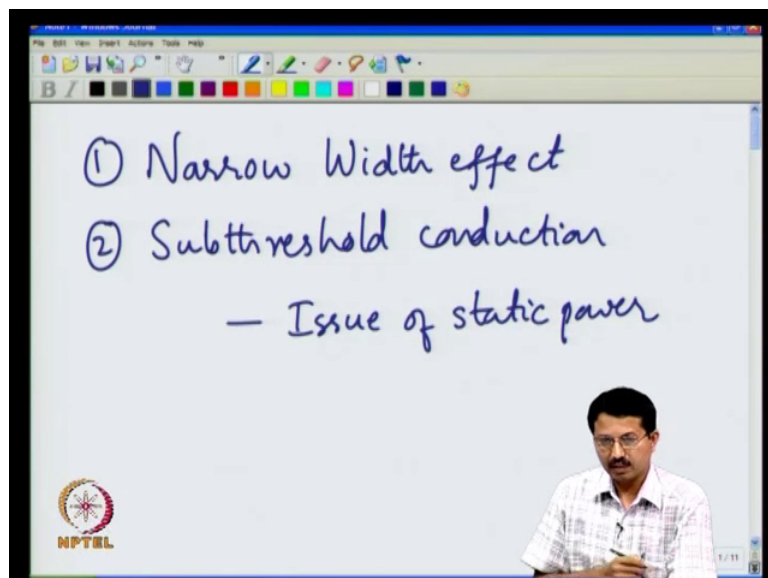 Note1 - Windows Journal
File Edit View Insert Actions Tools Help
B I
① Narrow Width effect
② Subthreshold conduction
— Issue of static power
NPTEL
1 / 11